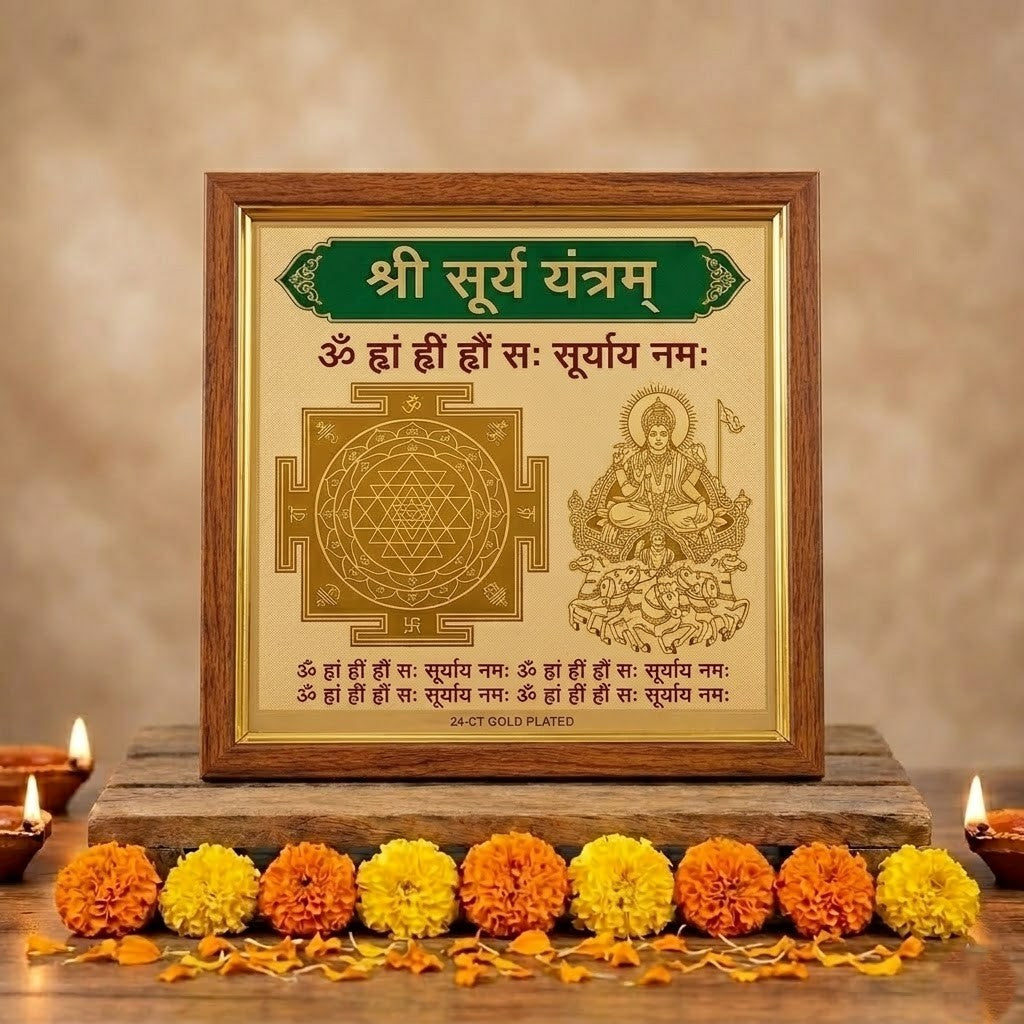 श्री सूर्य यंत्रम्
ॐ हृां हृीं हृौं सः सूर्याय नमः
ॐ
ॐ ह्रां ह्रीं ह्रौं सः सूर्याय नमः ॐ ह्रां ह्रीं ह्रौं सः सूर्याय नमः
ॐ ह्रां ह्रीं ह्रौं सः सूर्याय नमः ॐ ह्रां ह्रीं ह्रौं सः सूर्याय नमः
24-CT GOLD PLATED